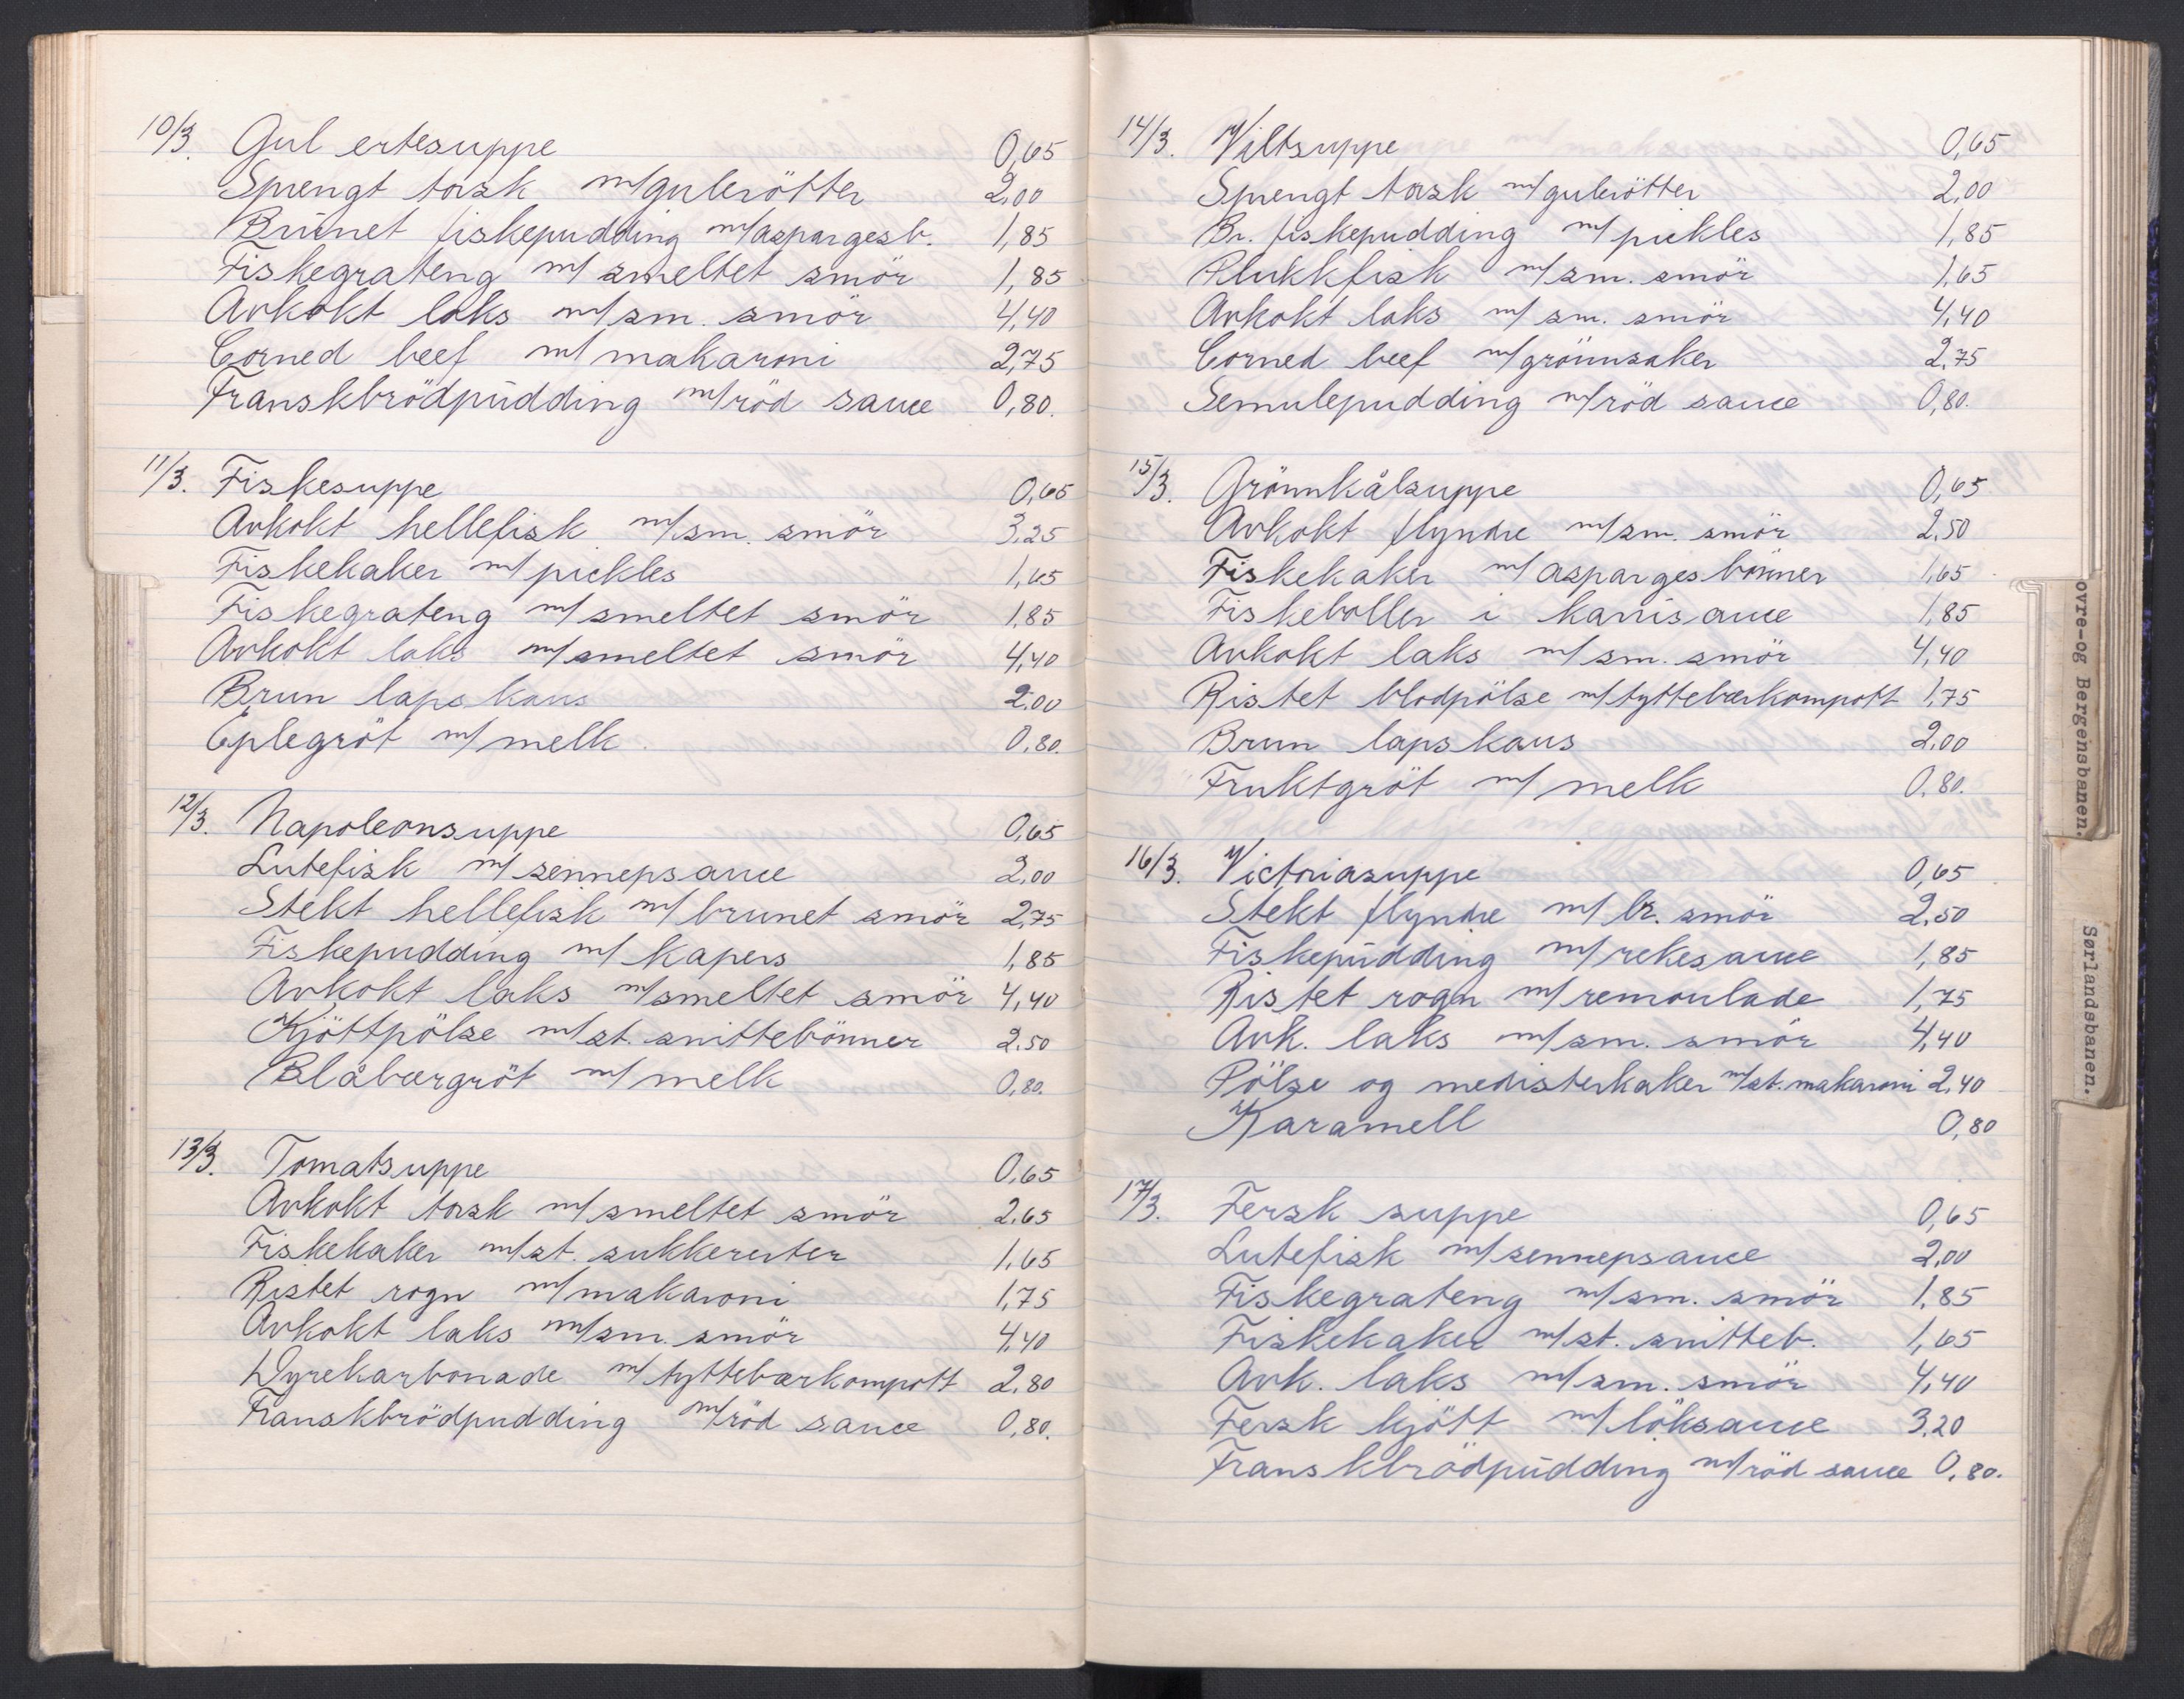 10/3. Gul ertesuppe 0,65
Sprengt torsk m/gulerötter 2,00
Brunet fiskepudding m/aspargesb. 1,85
Fiskegrateng m/ smeltet smör 1,85
Avkokt laks m/sm. smör 4,40
Corned beef m/ makaroni 2,75
Franskbrödpudding m/röd sauce 0,80.
11/3. Fiskesuppe 0,65
Avkokt hellefisk m/sm. smör 3,25
Fiskekaker m/ pickles 1,65
Fiskegrateng m/ smeltet smör 1,85
Avkokt laks m/smeltet smör 4,40
Brun lapskaus 2,00
Eplegröt m/ melk. 0,80.
12/3. Napoleonsuppe 0,65
Lutefisk m/ sennepsauce 2,00
Stekt hellefisk m/ brunet smör 2,75
Fiskepudding m/ kapers 1,85
Avkokt laks m/smeltet smör 4,40
Kjöttpölse m/st. snittebönner 2.50
Blåbærgröt m/ melk 0,80.
13/3. Tomatsuppe 0,65
Avkokt torsk m/ smeltet smör 2,65
Fiskekaker m/st. sukkererter 1,65
Ristet rogn m/ makaroni 1,75
Avkokt laks m/sm. smör 4,40
Dyrekarbonade m/ tyttebærkompott 2,80
Franskbrödpudding m/röd sauce 0,80.
14/3. Viltsuppe 0,65
Sprengt torsk m/ gulerötter 2,00
Br. fiskepudding m/ pickles 1,85
Plukkfisk m/sm. smör 1,65
Avkokt laks m/ sm. smör 4,40
Corned beef m/grönnsaker 2,75
Semulepudding m/röd sauce 0,80.
15/3. Grönnkålsuppe 0,65
Avkokt flyndre m/sm. smör 2,50
Fiskekaker m/ aspargesbönner 1,65
Fiskeboller i karrisauce 1,85
Avkokt laks m/ sm. smör 4,40
Ristet blodpölse m/tyttebærkompott 1,75
Brun lapskaus 2,00
Fruktgröt m/ melk 0,80.
16/3. Victoriasuppe 0,65
Stekt flyndre m/ br. smör 2,50
Fiskepudding m/rekesauce 1,85
Ristet rogn m/ remoulade 1,75
Avk. laks m/sm. smör 4,40
Pölse og medisterkaker m/st. makaroni 2,40
Karamell 0,80
17/3. Fersk suppe 0,65
Lutefisk m/ sennepsauce 2,00
Fiskegrateng m/sm. smör 1,85
Fiskekaker m/st. snitteb. 1,65
Avk. laks m/sm. smör 4,40
Fersk kjött m/ löksauce 3,20
Franskbrödpudding m/röd sauce 0,80.
ovre-og Bergensbanen.
Sørlandsbanen.